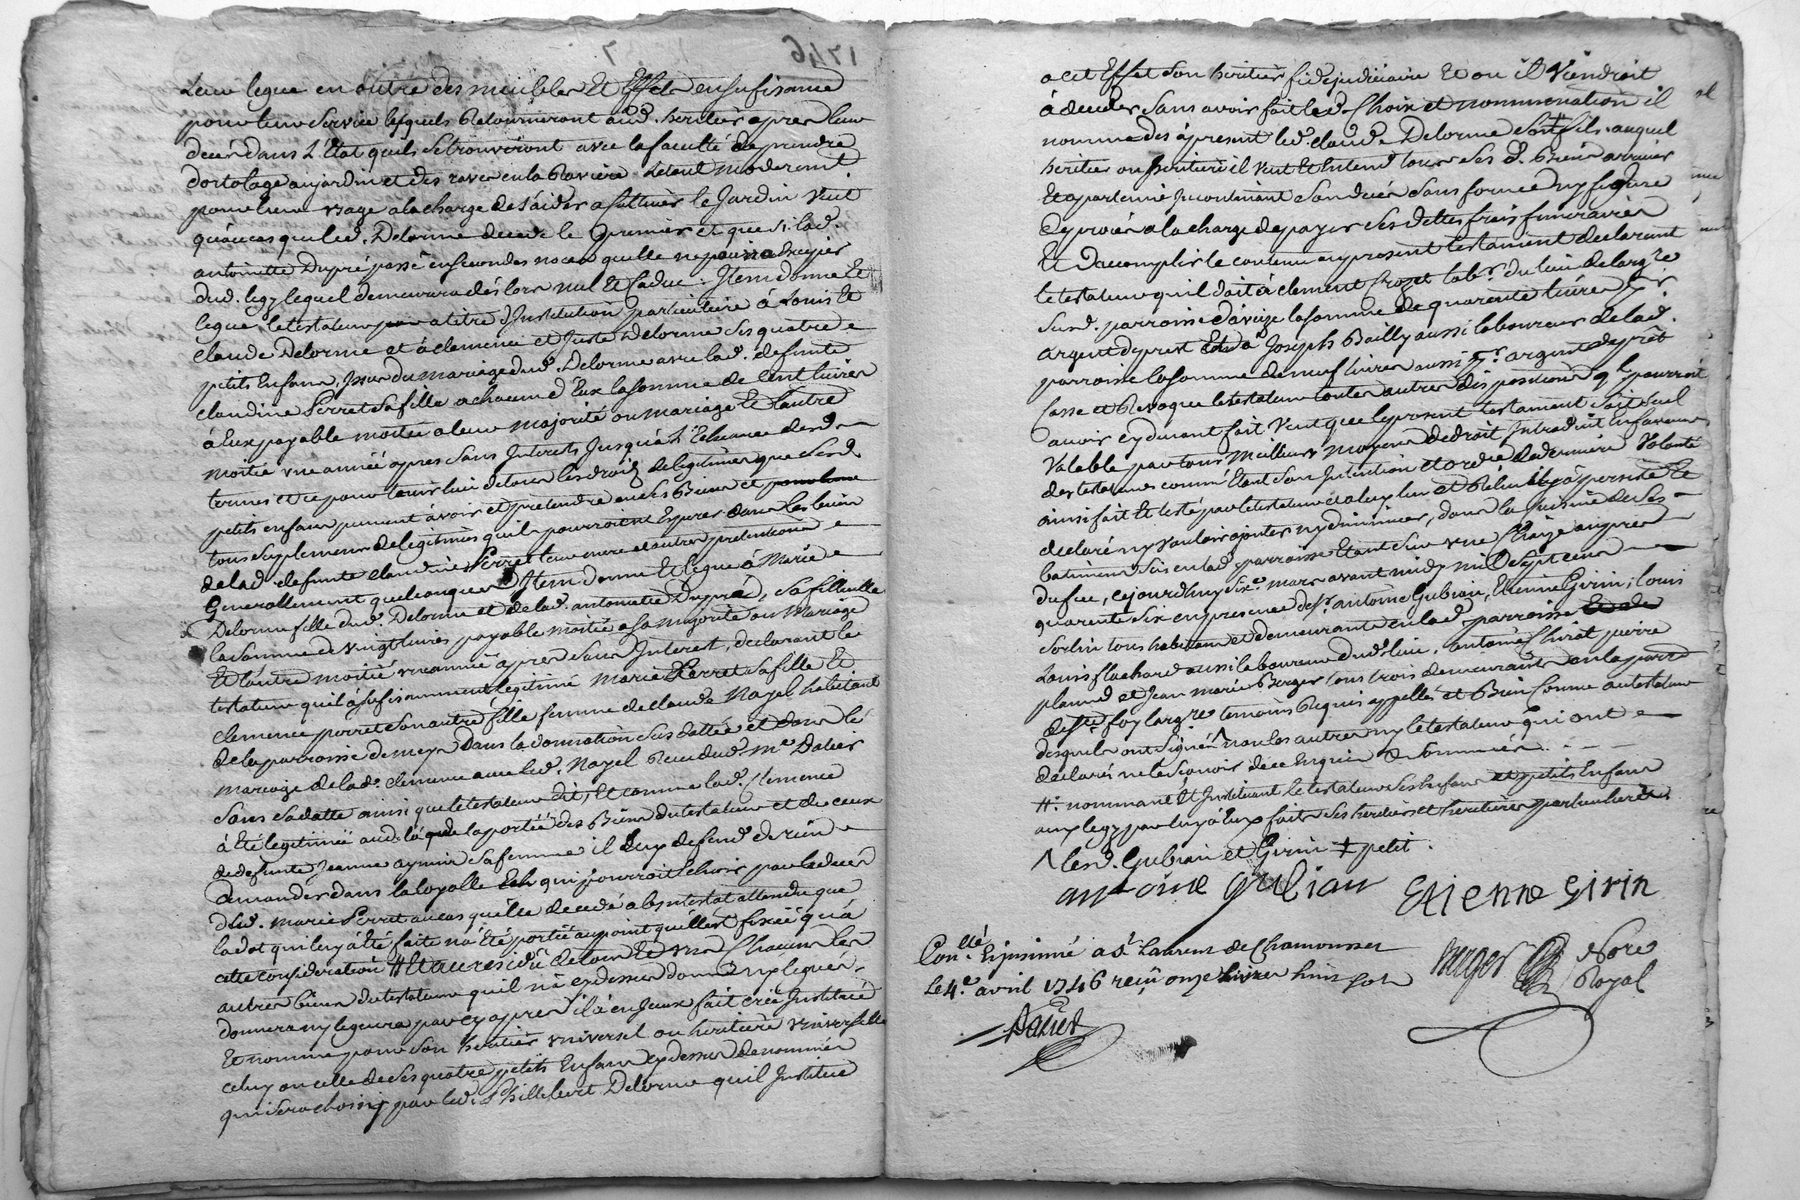 Leur legue en outre des meubles et Effets en sufisance
pour leur service lesquels Retourneront aud. heritier apres leur
deces dans L'Etat quils se trouveront avec la faculté de prendre
d'ortolage au jardin et des raves en la Raviere le tout moderem.t
pour leur usage a la charge de s'aider a cultiver le Jardin veut
qu'au cas que led. Delorme decede le premier et que si lad.
antoinette Dupré passe en secondes noces quelle ne puisse exciper
dud. legz lequel demeurera dés lors nul et Caduc. Item donne et
legue le testateur a titre d'Institution particuliere à Louis et
claude Delorme et à clemence et Juste Delorme ses quatre
petits Enfans, Issus du mariage dud. Delorme avec lad. defunte
claudine Perret sa fille a chacun d'Eux la somme de Cent livres
à Eux payable moitié a leur majorité ou mariage et L'autre
moitié une année apres sans Interests Jusqu'à L'Echeance desd.
termes et ce pour tenir lieu de tous les droits de legitimes que sesd.
petits enfans peuvent avoir et pretendre en ses Biens et
tous suplemens de legitimes quils pourroient Esperer dans les biens
de lad. defunte claudine Perret leur mere et autres pretentions
Generallement quelconques Item donne et legue à Marie
Delorme fille dud. Delorme et de lad. antoinette Dupré, sa fillieulle
la somme de vingt livres payable moitié a sa majorité ou Mariage
et l'autre moitié une année apres sans Interest, declarant le
testateur quil a sufisamment legitimé Marie Perret sa fille et
clemence perret son autre fille femme de claude Nayel habitant
de la parroisse de meys dans la donnation sus dattée et dans le
mariage de lad. clemence avec led. Nayel Recu dud. M.e Dalier
sans sa datte ainsi que le testateur dit, Et comme lad. Clemence
à Eté legitimée aud. là de la portée des Biens du testateur et de ceux
de defunte Jeanne aymin sa femme il luy defend de rien
demander dans la loyalle qui pourroit choir par le deces
de lad. Marie Perret au cas qu'elle decede ab intestat attendu que
la dot qui luy à Eté faite n'a Eté portée au point qu'elle est fixée qu'à
cette consideration # Et au residu de tous et uns Chacuns les
autres biens du testateur quil n'a cy dessus donné ny legués
donnera ny leguera par cy apres il à en Iceux fait créé Institué
et nomme pour son heritier universel ou heritiere universelle
celuy ou celle de ses quatre petits Enfans cy dessus denommés
qui sera choisy par led. Phillibert Delorme quil Institue
a cet Effet son heritier fideijudiciaire Et ou il Viendroit
à deceder sans avoir fait led. Choix et nommination il
nomme des à present led. claude Delorme Son fils auquel
heritier ou heritiere il veut et Entend tous ses d. Biens arriver
et apartenir Incontinant son deces sans forme ny figure
de procés a la charge de payer ses dettes frais funeraires
et D'acomplir le contenu au present testament declarant
le testateur quil doit à clement Crozet lab.r du lieu de largre
Susd. parroisse d'aveize la somme de quarente livres p.r
argent de prest Et à Joseph Bailly aussi laboureur de lad.
parroisse la somme de neuf livres aussi p.r argent de prêt
Casse et Revoque le testateur toutes autres dispositions q'l pourroit
avoir cy devant fait Veut que le present testament soit seul
Valable par tous Meilleurs Moyens de droit Introduit en faveur
des testamens comme Etant son Intention et ordre de derniere Volonté
ainsi fait Et testé par le testateur et a luy leu et Releu il y à persisté Et
declaré n'y vouloir ajouter ny diminuer, dans la Cuisine de ses
batimens sis en lad. parroisse Etant sur une Chaize aupres
du feu, cejourdhuy dix.e mars avant midy mil sept cens
quarente six en presence de s.r antoine Gubian, Etienne Girin, Louis
Sorlin tous habitans et demeurants en lad. parroisse
Louis flachard aussi laboureur dud. lieu, antoine Chirat pierre
planud et Jean Marie Berger tous trois demeurants en la parr.e
de s.te foy largre temoins Requis appellés et Bien Connu au testateur
desquels ont signés ^ non les autres ny le testateur qui ont
declarés ne le scavoir de ce Enquis et Sommés.
#. nommant et Instituant le testateur ses Enfans et petits Enfans
aux legz par luy à Eux faits ses heritiers et heritieres particulieres
^ Lesd. Gubian et Girin ‡ petit.
antoine gubian Etienne Girin
Con.lé Et Insinué a S.t Laurent de Chamousset
Le 4.e avril 1746 reçu onze livres huit sols
Dalier
Nore
Royal